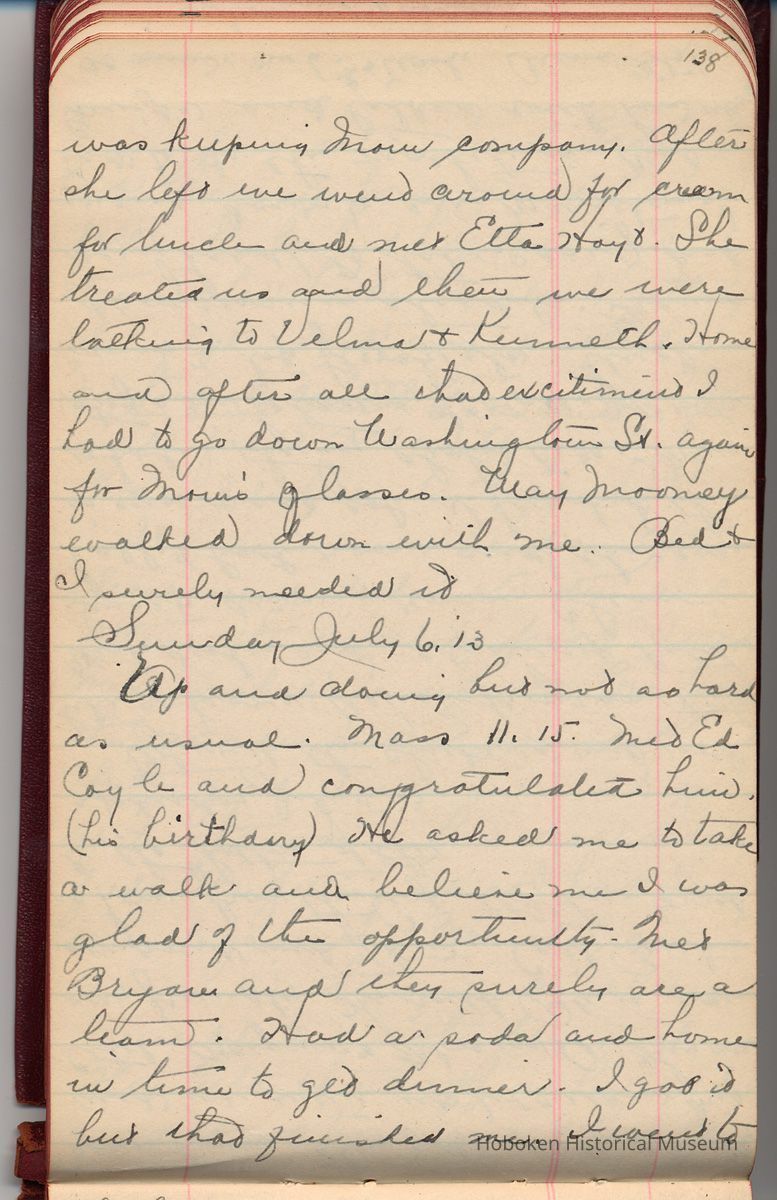 138
was keeping Mom company. After
she left we went around for cream
for Uncle and met Etta Hoyt. She
treated us and then we were
talking to Velma & Kenneth. Home
and after all that excitiment I
had to go down Washington St. again
for Mom's glasses. May Mooney
walked down with me. Bed &
I surely needed it
Sunday July 6, 13
Up and doing but not so hard
as usual. Mass 11.15. Met Ed
Coyle and congratulated him.
(his birthday) He asked me to take
a walk and believe me I was
glad of the opportunity. Met
Bryan and they surely are a
team. Had a soda and home
in time to get dinner. I got it
but that finished me. I went to
Hoboken Historical Museum